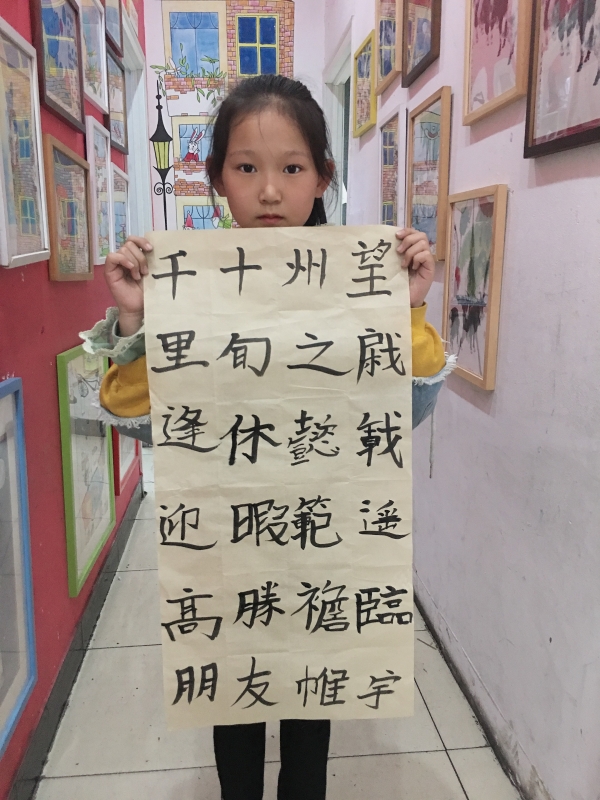 望戟遥臨宇
州之懿範襜帷
十旬休暇勝友
千里逢迎高朋